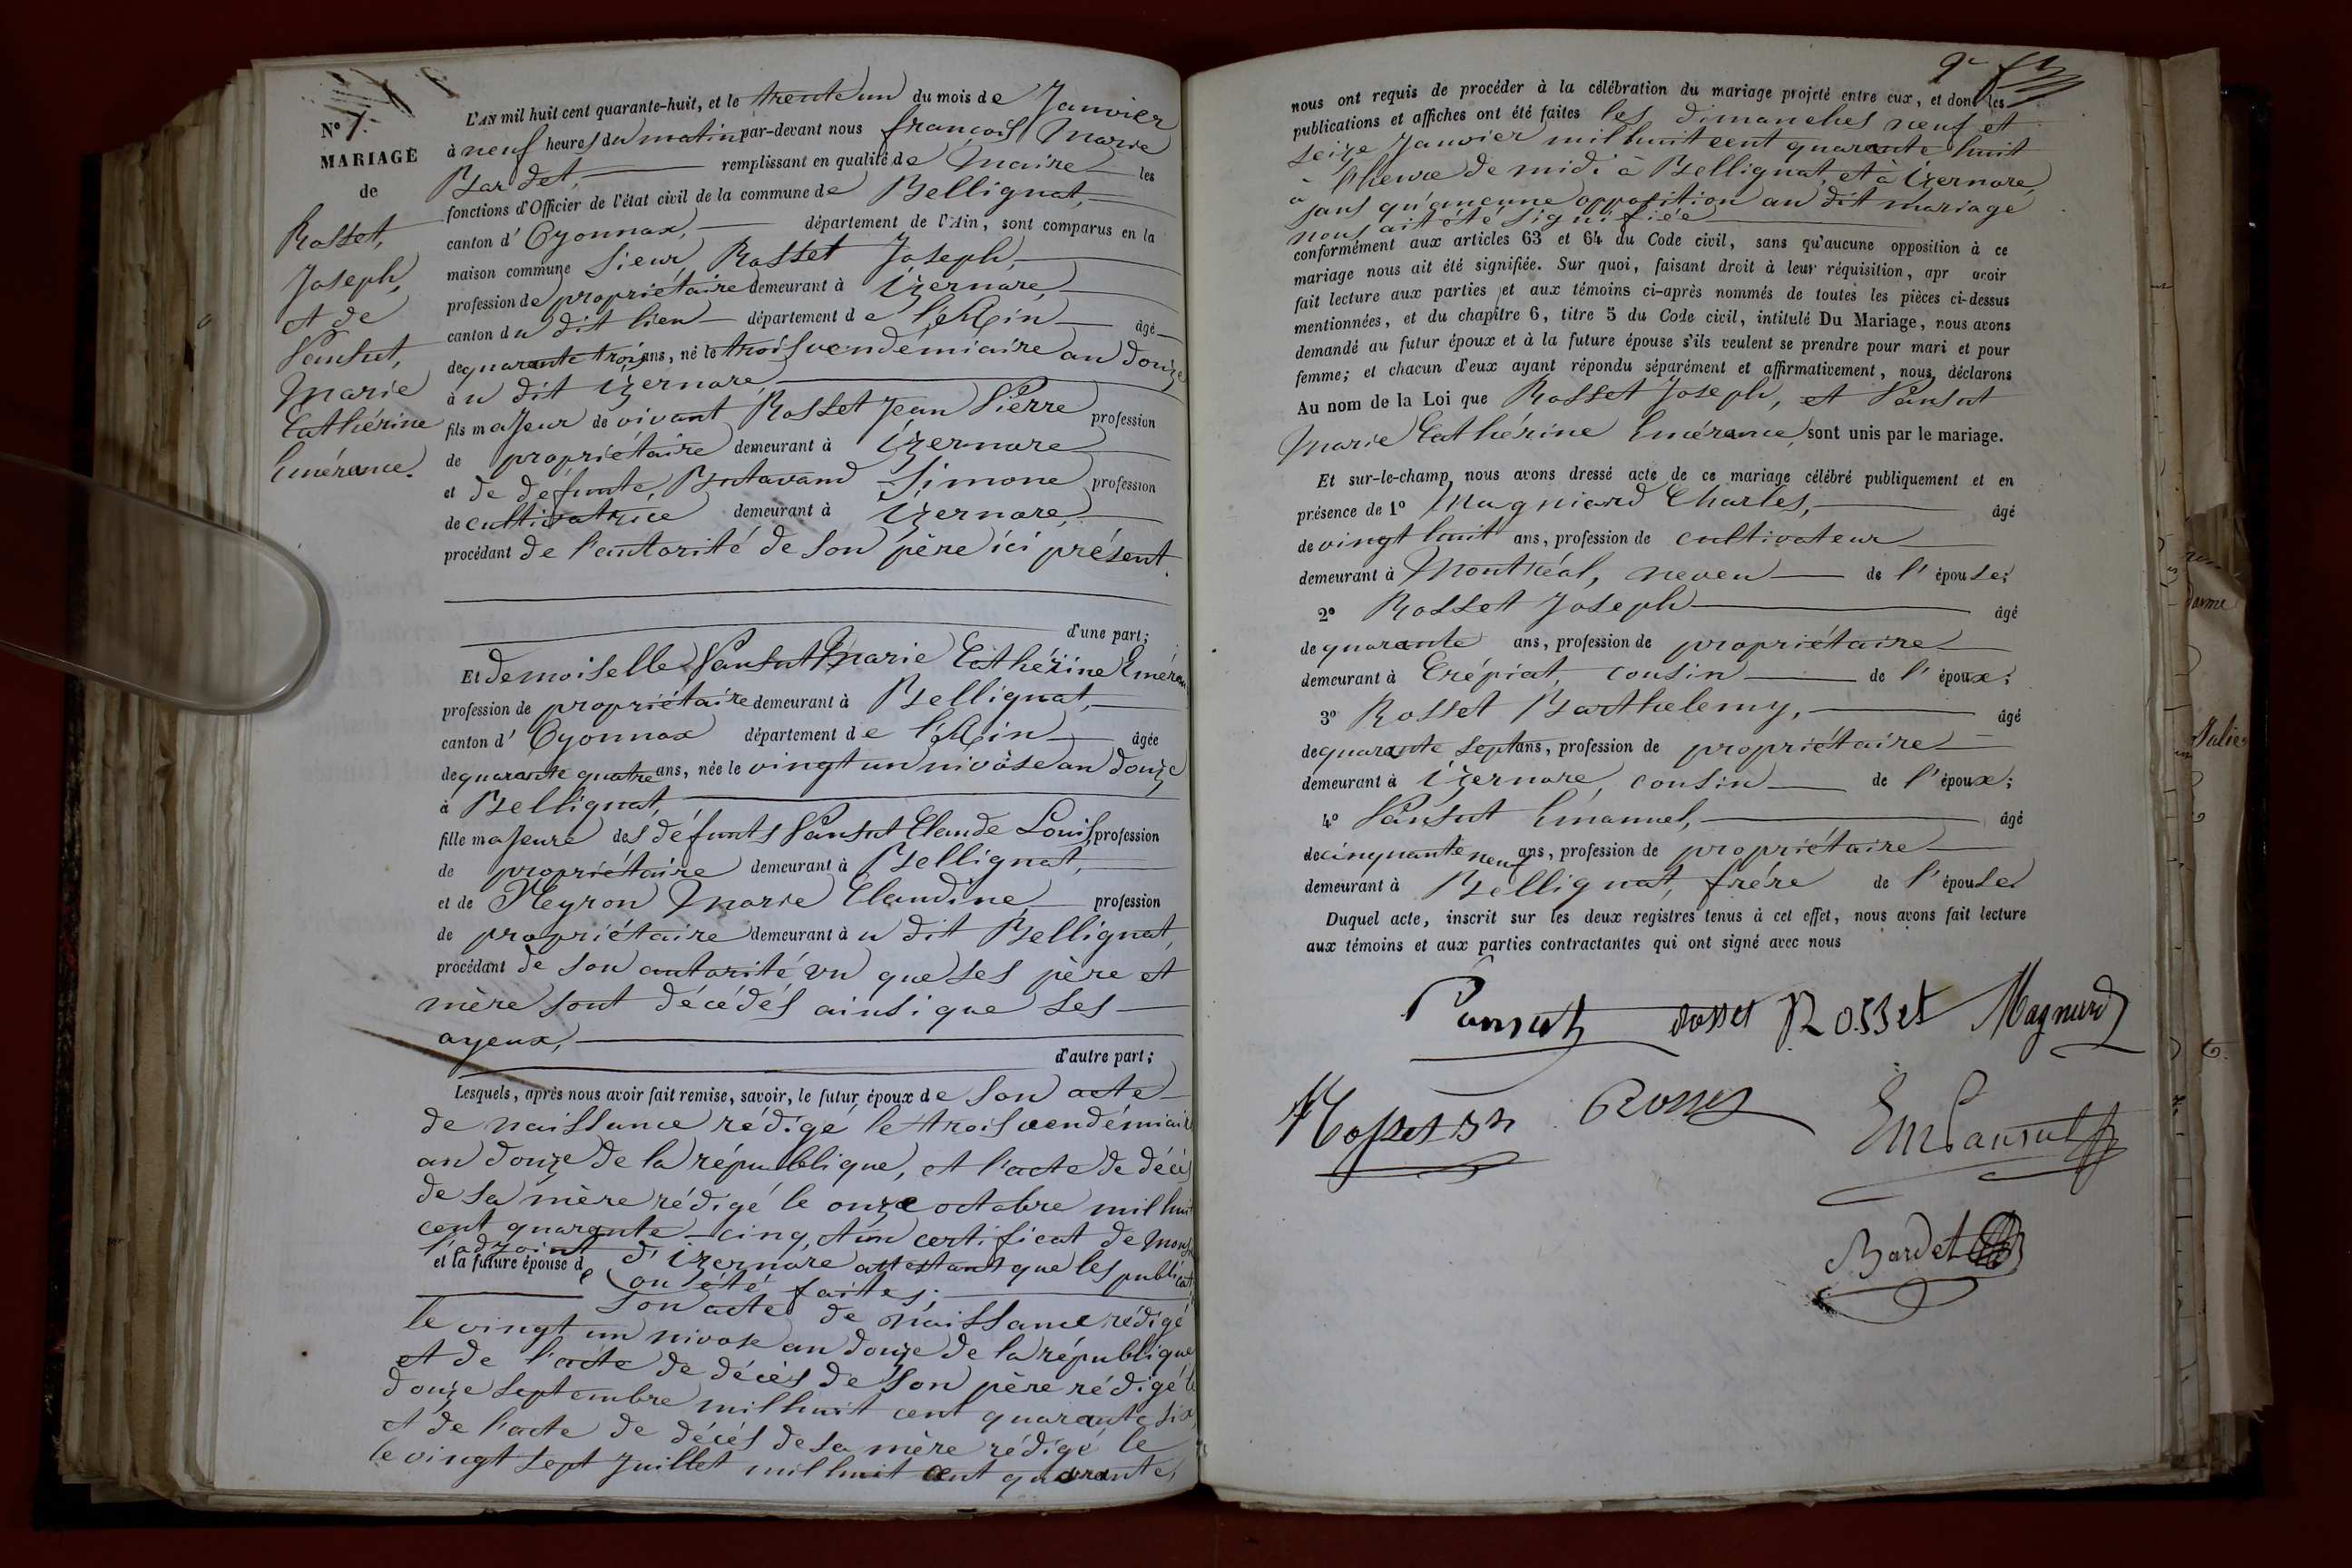 N° 7.
MARIAGE
de
Rosset,
Joseph,
et de
Pansut,
Marie
Cathérine
Emérance.
L'AN mil huit cent quarante-huit, et le trente un du mois de Janvier
à neuf heures du matin par-devant nous françois Marie
Bardet, remplissant en qualité de Maire les
fonctions d'Officier de l'état civil de la commune de Bellignat,
canton d' Oyonnax, département de l'Ain, sont comparus en la
maison commune Sieur Rosset Joseph,
profession de propriétaire demeurant à izernore,
canton du dit lieu département de l'Ain âgé
de quarante trois ans, né le trois vendémiaire an douze
à u dit izernore,
fils majeur de vivant Rosset Jean Pierre profession
de propriétaire demeurant à izernore
et de défunte, Butavand Simone profession
de cultivatrice demeurant à izernore,
procédant de l'autorité de son père ici présent.
d'une part;
Et demoiselle Pansut Marie Cathérine Eméran
profession de propriétaire demeurant à Bellignat,
canton d' Oyonnax département de l'Ain âgée
de quarante quatre ans, née le vingt un nivôse an douze
à Bellignat,
fille majeure des défunts Pansut Claude Louis, profession
de propriétaire demeurant à Bellignat,
et de Neyron Marie Claudine, profession
de propriétaire demeurant à u dit Bellignat,
procédant de son autorité vu que ses père et
mère sont décédés ainsi que ses
ayeux,
d'autre part;
Lesquels, après nous avoir fait remise, savoir, le futur époux de son acte
de naissance rédigé le trois vendémiair
an douze de la république, et l'acte de décès
de sa mère rédigé le onze octobre mil huit
cent quarante-cinq, et un certificat de Mons
l'adjoint d'izernore attestant que les publicat
on été faites;
et la future épouse de son acte de naissance rédigé
le vingt un nivose an douze de la république
et de l'acte de décès de son père rédigé le
douze septembre mil huit cent quarante six,
et de l'acte de décès de sa mère rédigé le
le vingt sept Juillet mil huit cent quarante,
nous ont requis de procéder à la célébration du mariage projeté entre eux, et dont les
publications et affiches ont été faites les dimanches neuf et
seize Janvier mil huit cent quarante huit
à l'heure de midi à Bellignat, et à izernore,
sans qu'aucune opposition au dit mariage
nous ait été signifiée
conformément aux articles 63 et 64 du Code civil, sans qu'aucune opposition à ce
mariage nous ait été signifiée. Sur quoi, faisant droit à leur réquisition, apr avoir
fait lecture aux parties et aux témoins ci-après nommés de toutes les pièces ci-dessus
mentionnées, et du chapitre 6, titre 5 du Code civil, intitulé Du Mariage, nous avons
demandé au futur époux et à la future épouse s'ils veulent se prendre pour mari et pour
femme; et chacun d'eux ayant répondu séparément et affirmativement, nous déclarons
Au nom de la Loi que Rosset Joseph, et Pansut
Marie Cathérine Emérance, sont unis par le mariage.
Et sur-le-champ nous avons dressé acte de ce mariage célébré publiquement et en
présence de 1° Magniard Charles, âgé
de vingt huit ans, profession de cultivateur
demeurant à Montréal, neveu de l' épouse;
2° Rosset Joseph âgé
de quarante ans, profession de propriétaire
demeurant à Crépiat, cousin de l' époux;
3° Rosset Barthelemy, âgé
de quarante sept ans, profession de propriétaire
demeurant à izernore, cousin de l' époux;
4° Pansut Emanuel, âgé
de cinquante neuf ans, profession de propriétaire
demeurant à Bellignat, frére de l' épouse
Duquel acte, inscrit sur les deux registres tenus à cet effet, nous avons fait lecture
aux témoins et aux parties contractantes qui ont signé avec nous
Pansut rosset Rosset Magnard
Rosset Rosset Em Pansut
Bardet